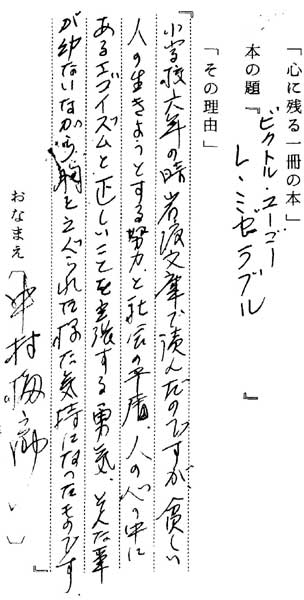 「心に残る一冊の本」
本の題『ビクトル・ユーゴー
レ・ミゼラブル　』
「その理由」
『小学校六年の時岩波文庫で読んだのですが、貧しい
人の生きようとする努力と社会の矛盾、人の心の中に
あるエゴイズムと正しいことを主張する勇気、そんな事
が幼いながら、胸をえぐられた様な気持になったものです』
おなまえ〔中村梅之助〕